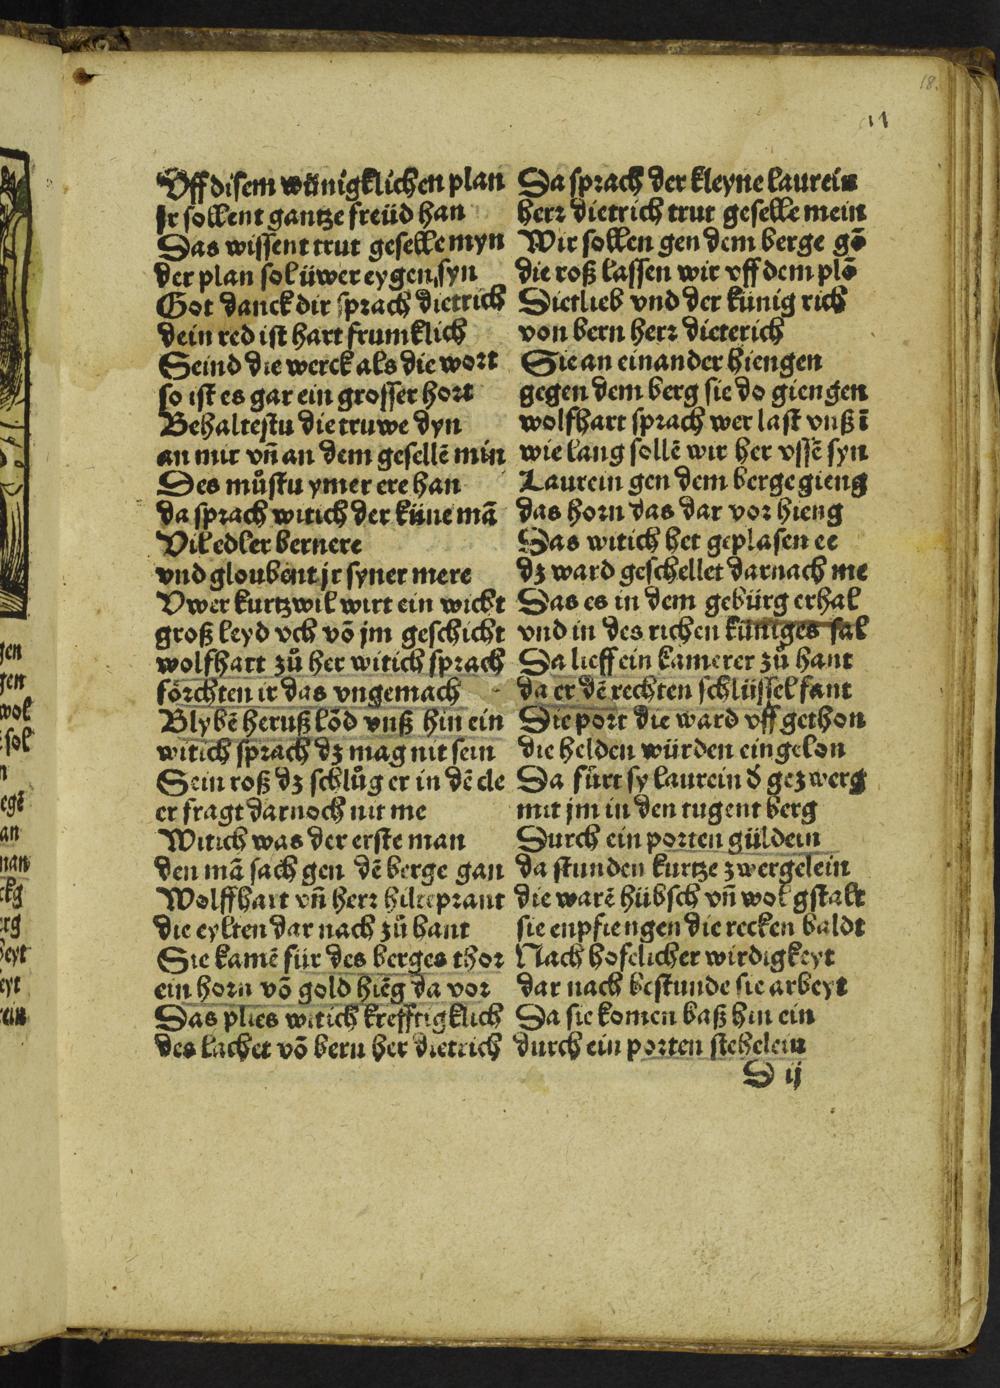 18.
11
Vff disem wünigklichen plan
jr sollent gantze freüd han
Das wissent trut geselle myn
der plan sol üwer eygen syn
Got danck dir sprach dietrich
dein red ist hart frumklich
Seind die werck als die wort
so ist es gar ein grosser hort
Behaltestu die truwe dyn
an mir vñ an dem gesellē min
Des můstu ymer ere han
da sprach witich der küne mā
Vil edler bernere
vnd gloubent jr syner mere
Vwer kurtzwil wirt ein wicht
groß leyd vch vō jm geschicht
wolfhart zů her witich sprach
förchten ir das vngemach
Blybē heruß lōd vnß hin ein
witich sprach dz mag nit sein
Sein roß dz schlůg er in dē cle
er fragt darnoch nit me
Witich was der erste man
den mā sach gen dē berge gan
Wolffhart vñ herr hilteprant
die eylten dar nach zů hant
Sie kamē für des berges thor
ein horn vō gold hiēg da vor
Das plies witich krefftigklich
des lachet vō bern her dietrich
Da sprach der kleyne laurein
herr dietrich trut geselle mein
Wir sollen gen dem berge gō
die roß lassen wir vff dem plō
Dietlieb vnd der künig rich
von bern herr dieterich
Sie an einander hiengen
gegen dem berg sie do giengen
wolfhart sprach wer last vnß ī
wie lang sollē wir her vssē syn
Laurein gen dem berge gieng
das horn das dar vor hieng
Das witich het geplasen ee
dz ward geschellet darnach me
Das es in dem gebürg erhal
vnd in des richen küniges sal
Da lieff ein kamerer zů hant
da er dē rechten schlüssel fant
Die port die ward vff gethon
die helden würden eingelon
Da fürt sy laurein d̄ gezwerg
mit jm in den tugent berg
Durch ein porten güldein
da stunden kurtze zwergelein
die warē hübsch vñ wol gstalt
sie enpfiengen die recken baldt
Nach hofelicher wirdigkeyt
dar nach bestunde sie arbeyt
Da sie komen baß hin ein
durch ein porten stehelein
D ij
gen
gen
wol
sol
n
egē
an
nan
ckg
erg
beyt
eyt
rein